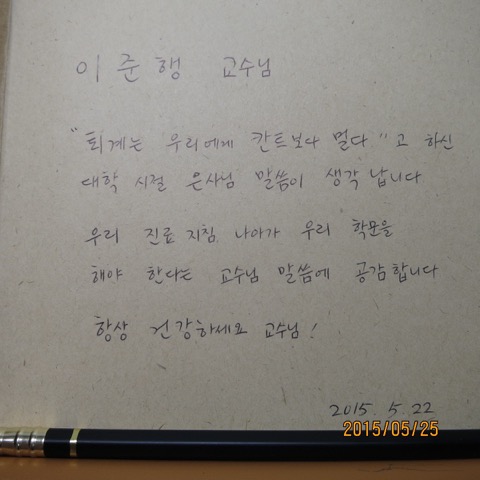 이 준 행 교수님
"퇴계는 우리에게 칸트보다 멀다"고 하신
대학 시절 은사님 말씀이 생각 납니다
우리 진료지침, 나아가 우리 학문을
해야 한다는 교수님 말씀에 공감합니다
항상 건강하세요 교수님!
2015. 5. 22
2015/05/25